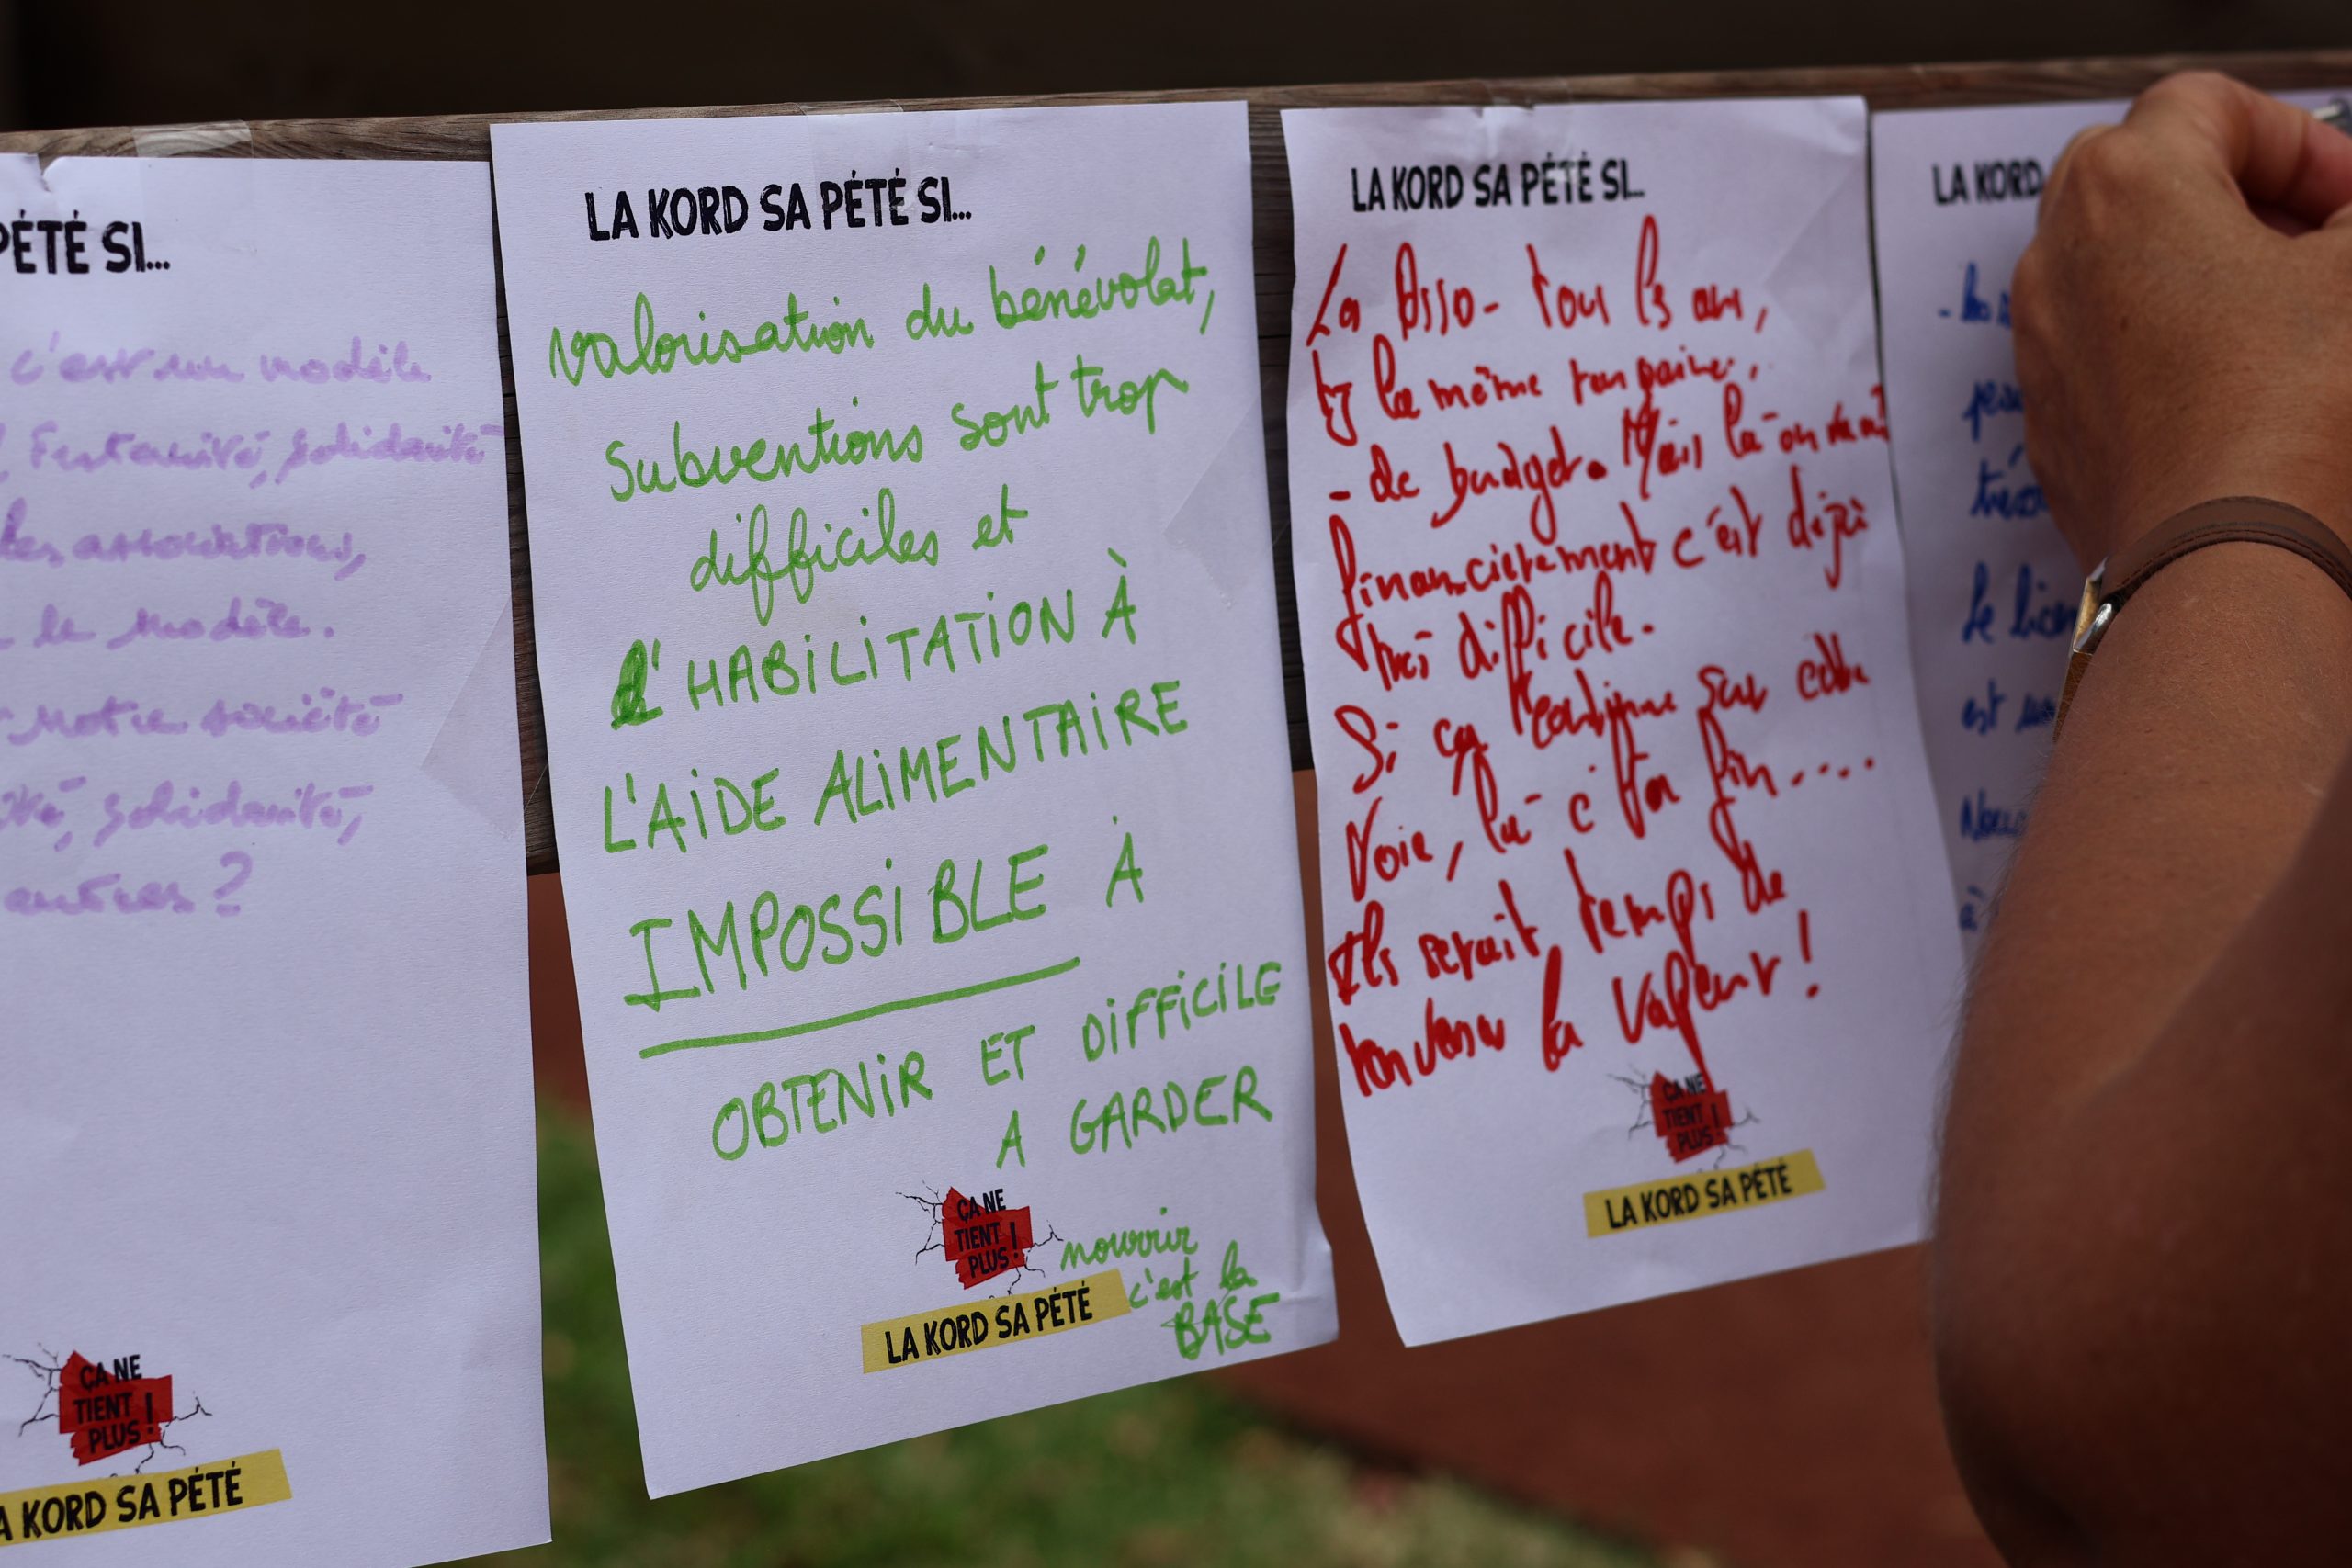 PÉTÉ SI...
c'est un modèle
Fraternité, solidarité
les associations,
le modèle.
notre société
solidarité,
autres ?
ÇA NE
TIENT
PLUS !
A KORD SA PÉTÉ
LA KORD SA PÉTÉ SI...
valorisation du bénévolat,
subventions sont trop
difficiles et
l'HABILITATION À
L'AIDE ALIMENTAIRE
IMPOSSIBLE À
OBTENIR ET DIFFICILE
A GARDER
ÇA NE
TIENT
PLUS !
nourrir
c'est la
BASE
LA KORD SA PÉTÉ
LA KORD SA PÉTÉ SI...
La Asso - Tous les ans,
la même rengaine,
- de budget. Mais là - on
financièrement c'est déjà
très difficile.
Si ça continue sur cette
Voie, là c la fin ....
Ils serait temps de
renverser la vapeur !
ÇA NE
TIENT
PLUS !
LA KORD SA PÉTÉ
LA KORD
est